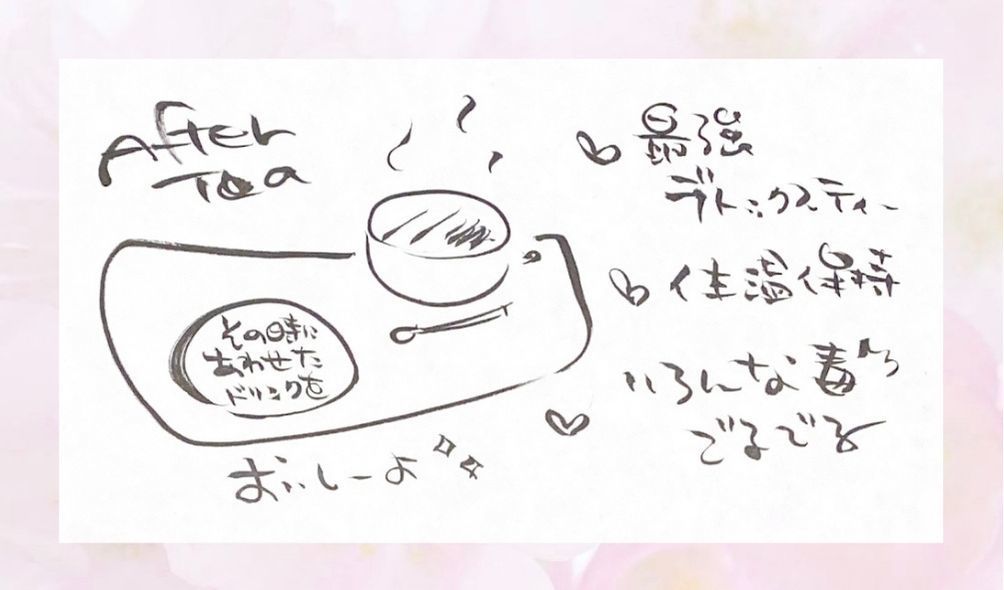 After
Tea
その時に
あわせた
ドリンクを
おいしーよ
最強
デトックスティー
体温保持
いろんな毒
でるでる